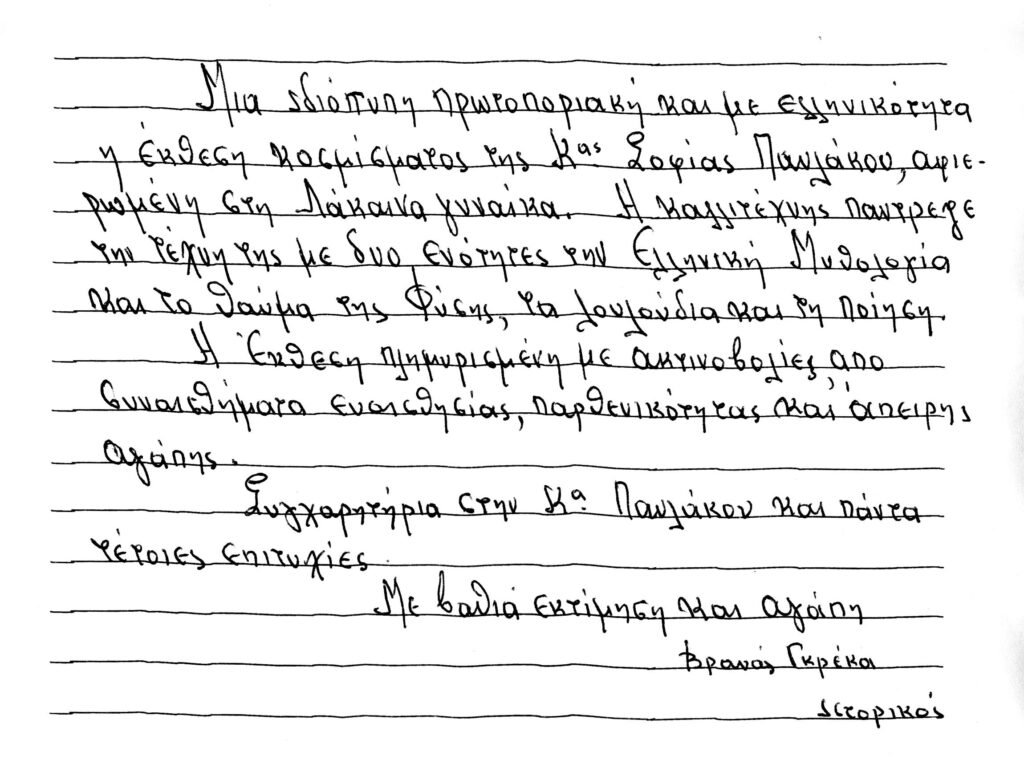 Μια ιδιότυπη πρωτοποριακή και με ελληνικότητα
η έκθεση κοσμίσματος της Κας Σοφίας Παυλάκου, αφιε-
ρωμένη στη Λάκαινα γυναίκα. Η καλλιτέχνης παντρεψε
την τέχνη της με δυο ενότητες την Ελληνική Μυθολογία
και το θαύμα της Φύσης, τα λουλούδια και τη ποίηση.
Η Έκθεση πλημυρισμένη με ακτινοβολίες, απο
συναισθήματα ευαισθησίας, παρθενικότητας και άπειρης
αγάπης.
Συγχαρητήρια στην Κα. Παυλάκου και πάντα
τέτοιες επιτυχίες.
Με βαθιά εκτίμηση και αγάπη
Βρανάς Γκρέκα
Ιστορικός